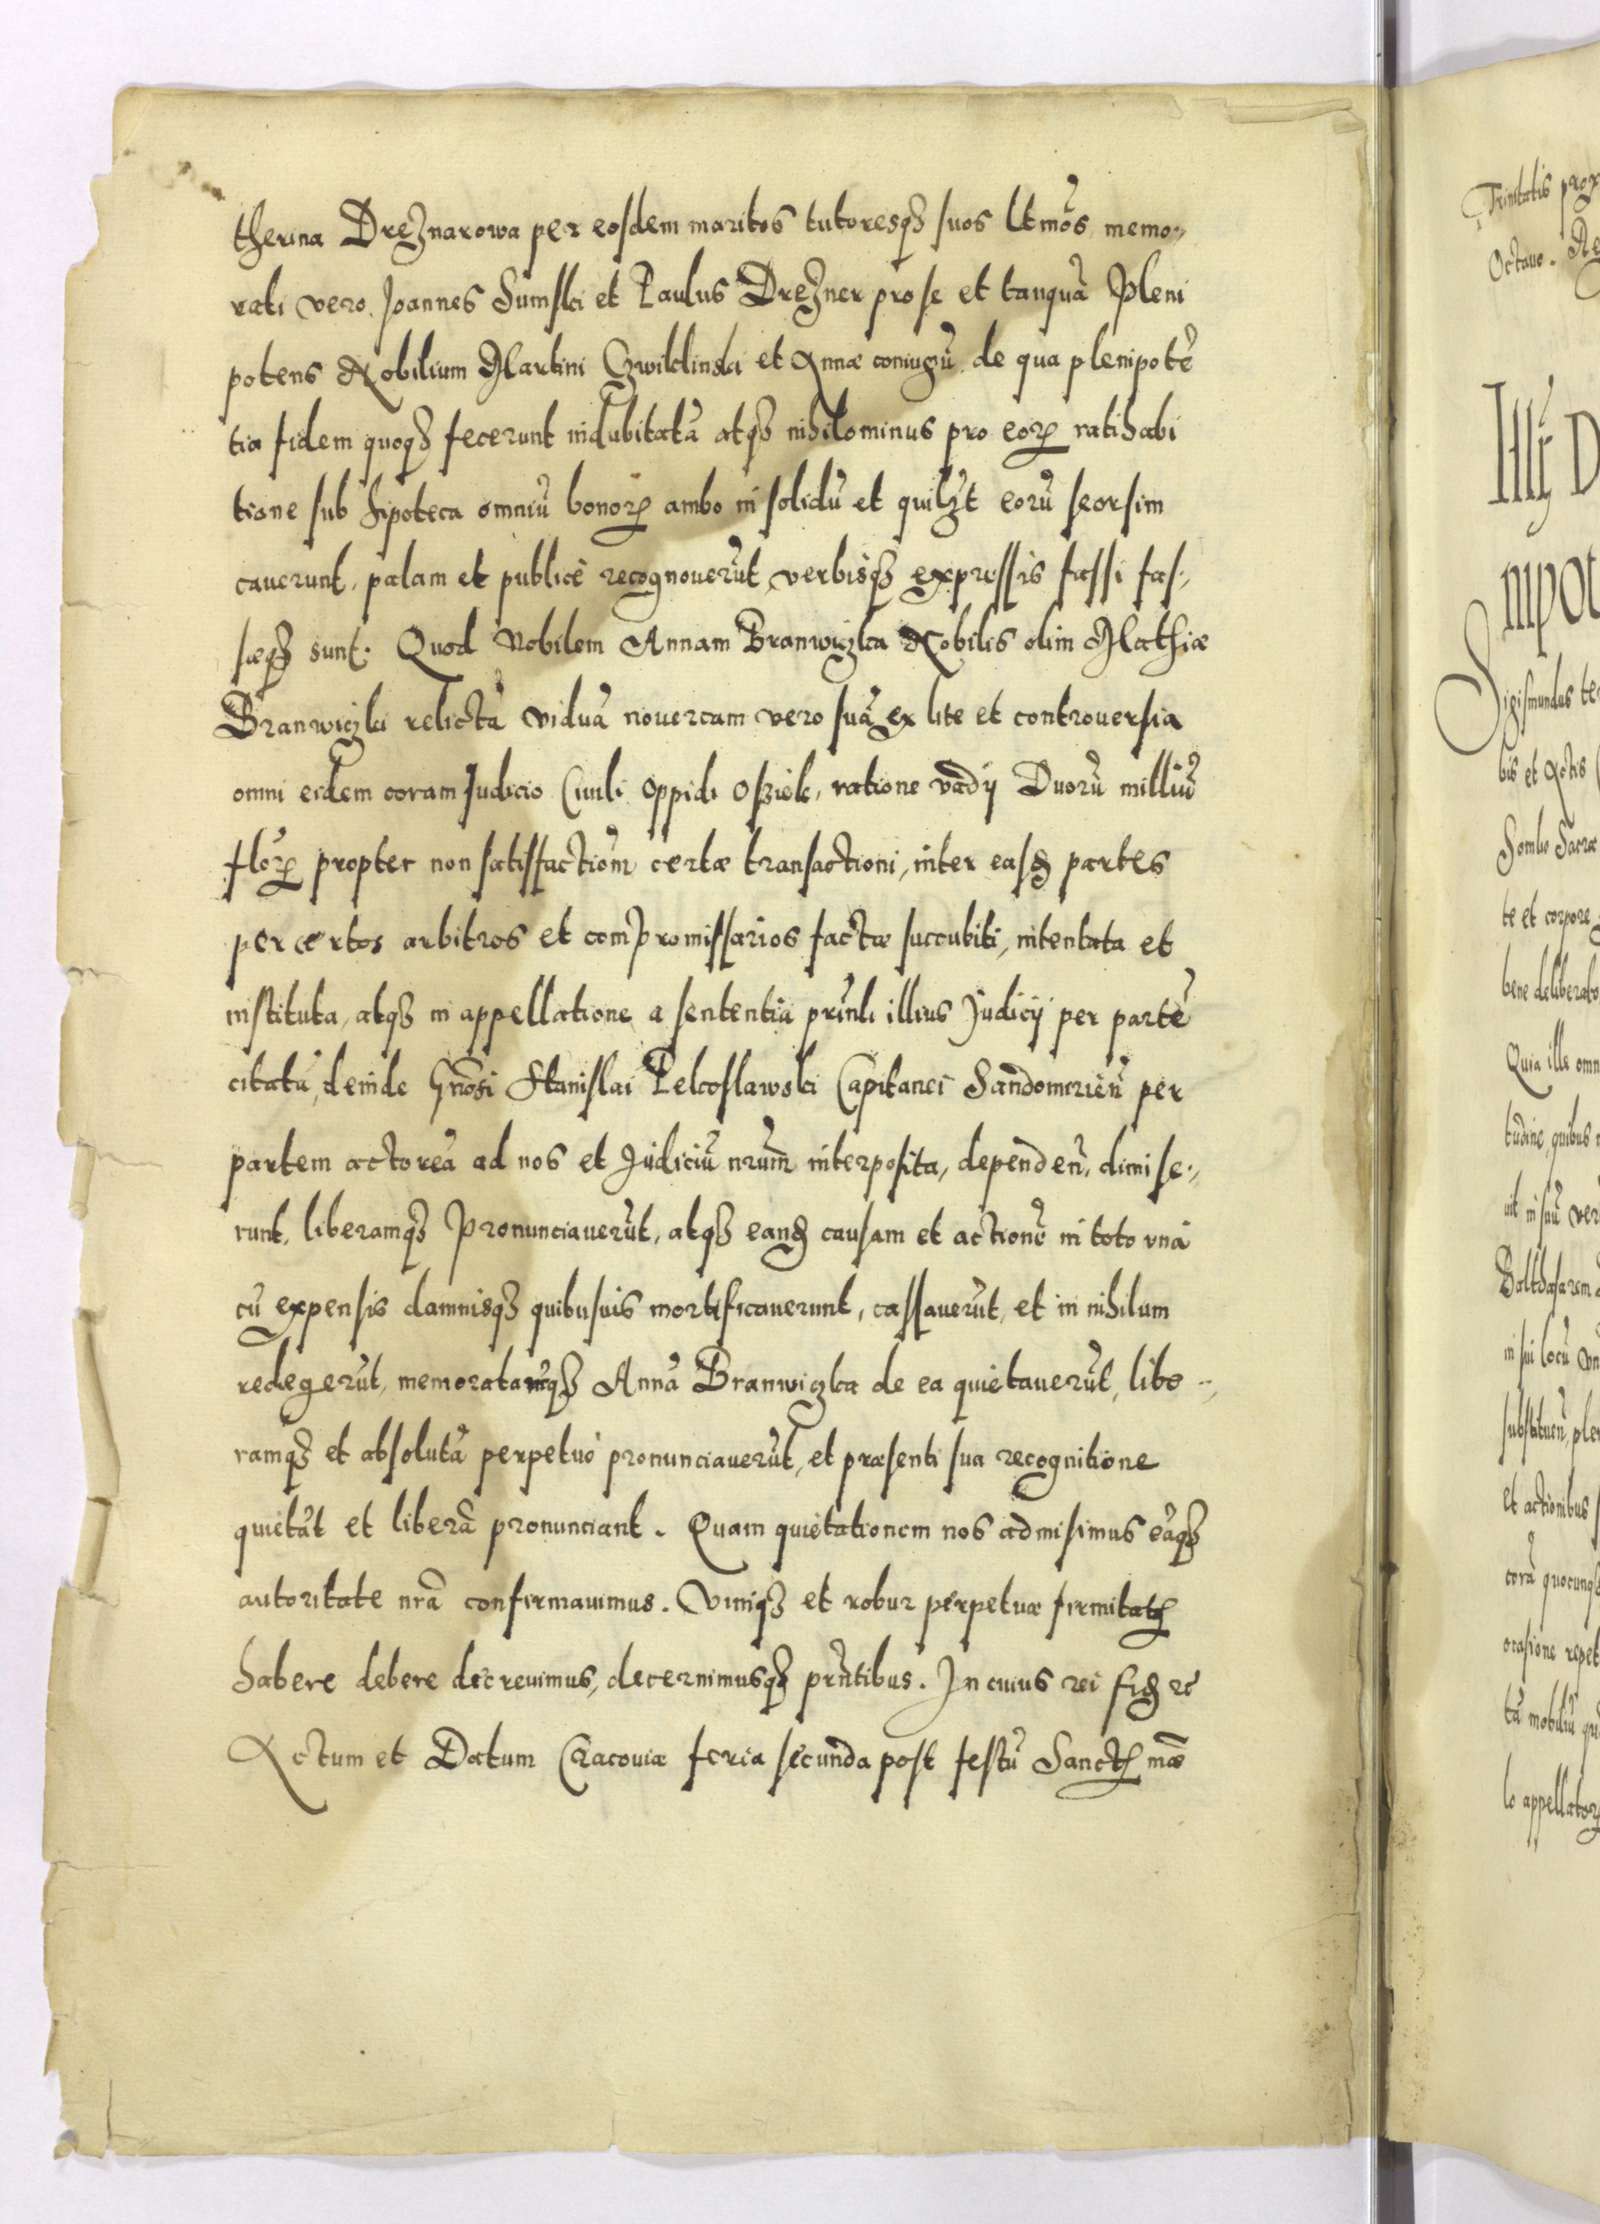 therina Dreznarowa per eosdem maritos tutoresq₃ suos ltm̃os, memo-
rati vero Joannes Sumski et Paulus Drezner pro se et tanquã Pleni
potens Nobilium Martini Czwiklinski et Annæ coniugũ, de qua plenipotẽ
tia fidem quoq₃ fecerunt indubitatã atq₃ nihilominus pro eorꝝ ratihabi
tione sub hipoteca omniũ bonorꝝ ambo in solidũ et quilz̃t eorũ seorsim
cauerunt, palam et publicè recognouerũt, verbisq₃ expressis fassi fas-
sæq₃ sunt. Quod Nobilem Annam Branwiczka Nobilis olim Mathiæ
Branwiczki relictã viduã nouercam vero suã ex lite et controuersia
omni eidem coram Judicio Ciuili oppidi Osziek, ratione vadij Duorũ milliũ
flõrꝝ propter non satisfactionẽ certæ transactioni, inter easd̃ partes
per certos arbitros et compromissarios factæ succubiti, intentata et
instituta, atq₃ in appellatione a sententia prĩnli illius Judicij per partẽ
citatã, deinde Gñosi Stanislai Pelcoslawski Capitanei Sandomirieñ per
partem actoreã ad nos et Judiciũ nrũm interposita, dependeñ, dimise-
runt, liberamq₃ Pronunciauerũt, atq₃ eand̃ causam et actionẽ in toto vnà
cũ expensis damnisq₃ quibusuis mortificauerunt, cassauerũt, et in nihilum
redegerũt, memoratamq₃ Annã Branwiczka de ea quietauerũt, libe-
ramq₃ et absolutã perpetuò pronunciauerũt, et præsenti sua recognitione
quietãt et liberã pronunciant. Quam quietationem nos admisimus eãq₃
autoritate nr̃a confirmauimus. Vimq₃ et robur perpetuæ firmitatꝭ
habere debere decreuimus, decernimusq₃ prñtibus. In cuius rei fid̃ ec̃
Actum et Datum Cracouiæ feria secunda post festũ Sanctꝭ mæ̃
Trinitatis prox
Octauo. Re
Illr̃ D
mpot
Sigismundus ter
bis et Actis
Sombo Sacræ
te et corpore
bene deliberato
Quia ille omn
tudine, quibus
uit in suũ ver
Balthasarem
in sui locũ vn
substituen̄, ple
et actionibus
corã quocunq₃
ocasione repet
tã mobiliũ qu
lo appellator